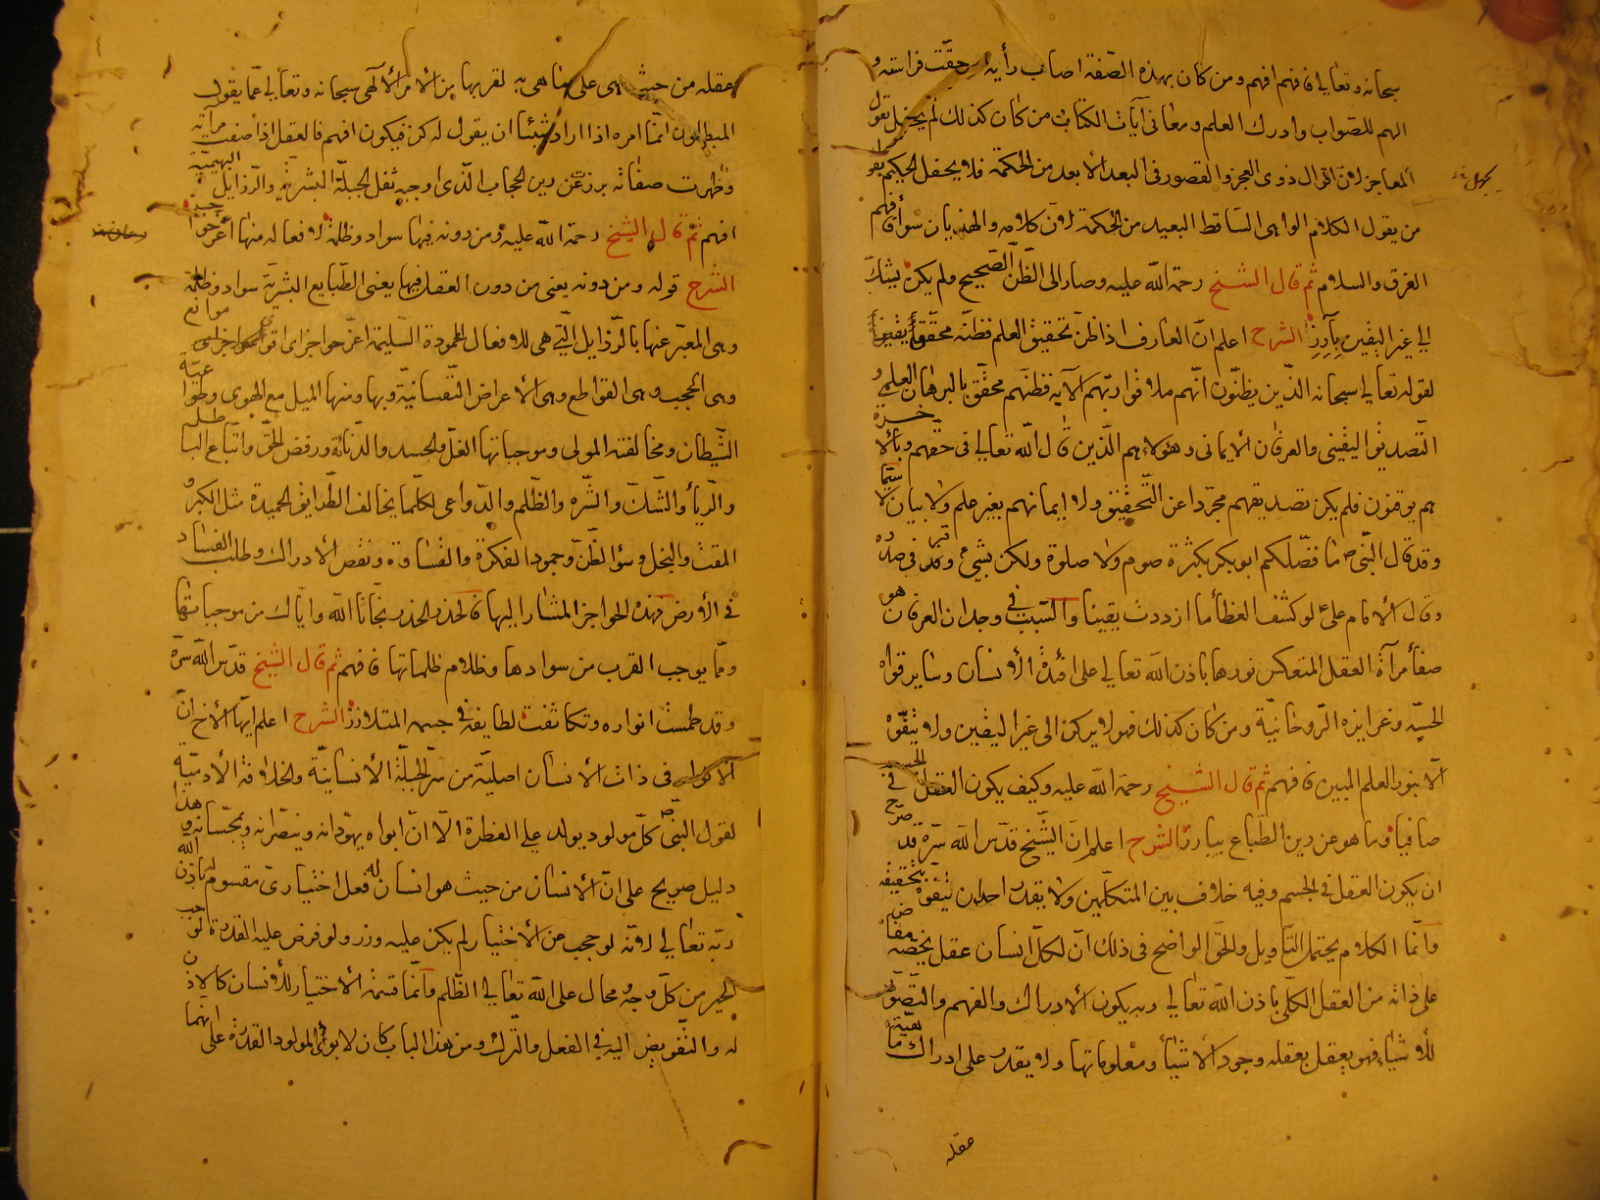 سبحانه وتعالى فافهم افهم ومن كان بهذه الصّفة اصاب رأيه حقّت فراسته و
الهم للصّواب وادرك العلم ومعانى آيات الكتاب ومن كان كذلك لم يحتمل قول
المعاجز لانّ اقوال ذوى العجز والقصور فى البعد الأبعد من الحكمة فلا يحفل الحكيم بقو
من يقول الكلام الواهى السّاقط البعيد من الحكمة لانّ كلامه والهذيان سوآء فافهم
الغرق والسلام ثم قال الشيخ رحمة الله عليه وصار الى الظّنّ الصّحيح ولم يكن بشكّ
الى غير اليقين بآرز الشرح اعلم انّ العارف اذا ظنّ تحقيق العلم فظنّه محقّق يقين
لقوله تعالى سبحانه الذّين يظنّون انّهم ملاقوا ربّهم الآية فظنّهم محقّق بالبرهان العلمى و
التّصديق اليقينى والعرفان الأيمانى وهؤلاء هم الّذين قال الله تعالى فى حقّهم وبالآخرة
هم يوقنون فلم يكن تصديقهم مجرّدا عن التّحقيق ولا ايمانهم بغير علم ولا بيان لا سيّما
وقد قال النّبى ص ما فضّلكم ابو بكر بكثرة صوم ولا صلوة ولكن بشىء وقر فى صدره
وقال الأمام على لو كشف الغطأ ما ازددت يقينا والسّبب فى وجدان العرفان هو
صفأ مرآة العقل المنعكس نورها باذن الله تعالى على افئدة الأنسان وساير قواه
الحسيّه وغرايزه الرّوحانيّة ومن كان كذلك فهو لا يركن الى غير اليقين ولا يتفّوه
الّا بنور العلم المبين فافهم ثم قال الشيخ رحمة الله عليه وكيف يكون العقل فى الجسم
صافيا وما هو عن رين الطّباع ببارز الشرح اعلم انّ الشّيخ قدّس الله سرّه قد صرّح
ان يكون العقل فى الجسم وفيه خلاف بين المتكلّمين ولا يقدر احد ان يتفوّه بتحقيقه
وانّما الكلام يحتمل التّأويل والحقّ الواضح فى ذلك انّ لكلّ انسان عقل يخصّه مفاض
على ذاته من العقل الكلّى باذن الله تعالى وبه يكون الأدراك والفهم والتّصوّر
للأشياء فهو يعقل بعقله وجود الأشيأ ومعلوماتها ولا يقدر على ادراك ماهيّة
عقله
عقله من حيث هى على ما هى به لقربها من الأمر الألهى سبحانه وتعالى عمّا يقول
المبطلون انّما امره اذا اراد شيئا ان يقول له كن فيكون افهم فالعقل اذا صفت مرآته
وظهرت صفاته برز عن رين الحجاب الّذى اوجبه ثقل الجبلّة البشريّة والرّذايل البهيميّة
افهم ثم قال الشيخ رحمة الله عليه ومن دونه فيها سواد وظلمة لافعاله منها اعز حواجز
الشرح قوله ومن دونه يعنى من دون العقل فيها يعنى الطّبايع البشريّة سواد وظلمة
وهى المعبّر عنها بالرّذايل الّتى هى للافعال المحمودة السّليمة اعزّ حواجز اى اقوى موانع
وهى الحجب وهى القواطع وهى الأعراض النّفسانيّة وبها ومنها الميل مع الهوى وطواعية
الشّيطان ومخالفته المولى وموجباتها الغلّ والحسد والدّنائة ورفض الحق واتّباع الباطل
والرّيأ والشّكّ والشّره والظّلم والدّواعى لكلّما يخالف الطّرايق الحميدة مثل الكبر و
المقت والبخل وسؤ الظّنّ وجمود الفكرة والقساوة ونقص الأدراك وطلب الفساد
فى الأرض فهذه الحواجز المشار اليها فالحذر الحذر نجّانا الله وايّاك من موجباتها
وممّا يوجب القرب من سوادها وظلام ظلماتها فافهم ثم قال الشيخ قدّس الله سرّه
وقد طمست انواره وتكاثفت لطايفه فى جسمه المتلازز الشرح اعلم ايّها الأخ انّ
الأنوار فى ذات الأنسان اصليّة من سرّ الجبلّة الأنسانيّة والخلافة الأدميّة
لقول النبى ص كلّ مولود يولد على الفطرة الّا انّ ابواه يهوّدانه وينصّرانه ويمجّسانه وهذا
دليل صريح على انّ الأنسان من حيث هو انسان له فعل اختيارىّ مقسوم له باذن الله
ربّه تعالى لانّه لو حجب عن الأختيار لم يكن عليه وزر ولو فرض عليه القدرة لوجب
الجبر من كلّ وجه ومحال على الله تعالى الظّلم وانّما قسمة الأختيار للأنسان كالاذن
له والتّفويض اليه فى الفعل والتّرك ومن هذا الباب كان لابوى المولود القدرة على انّهما